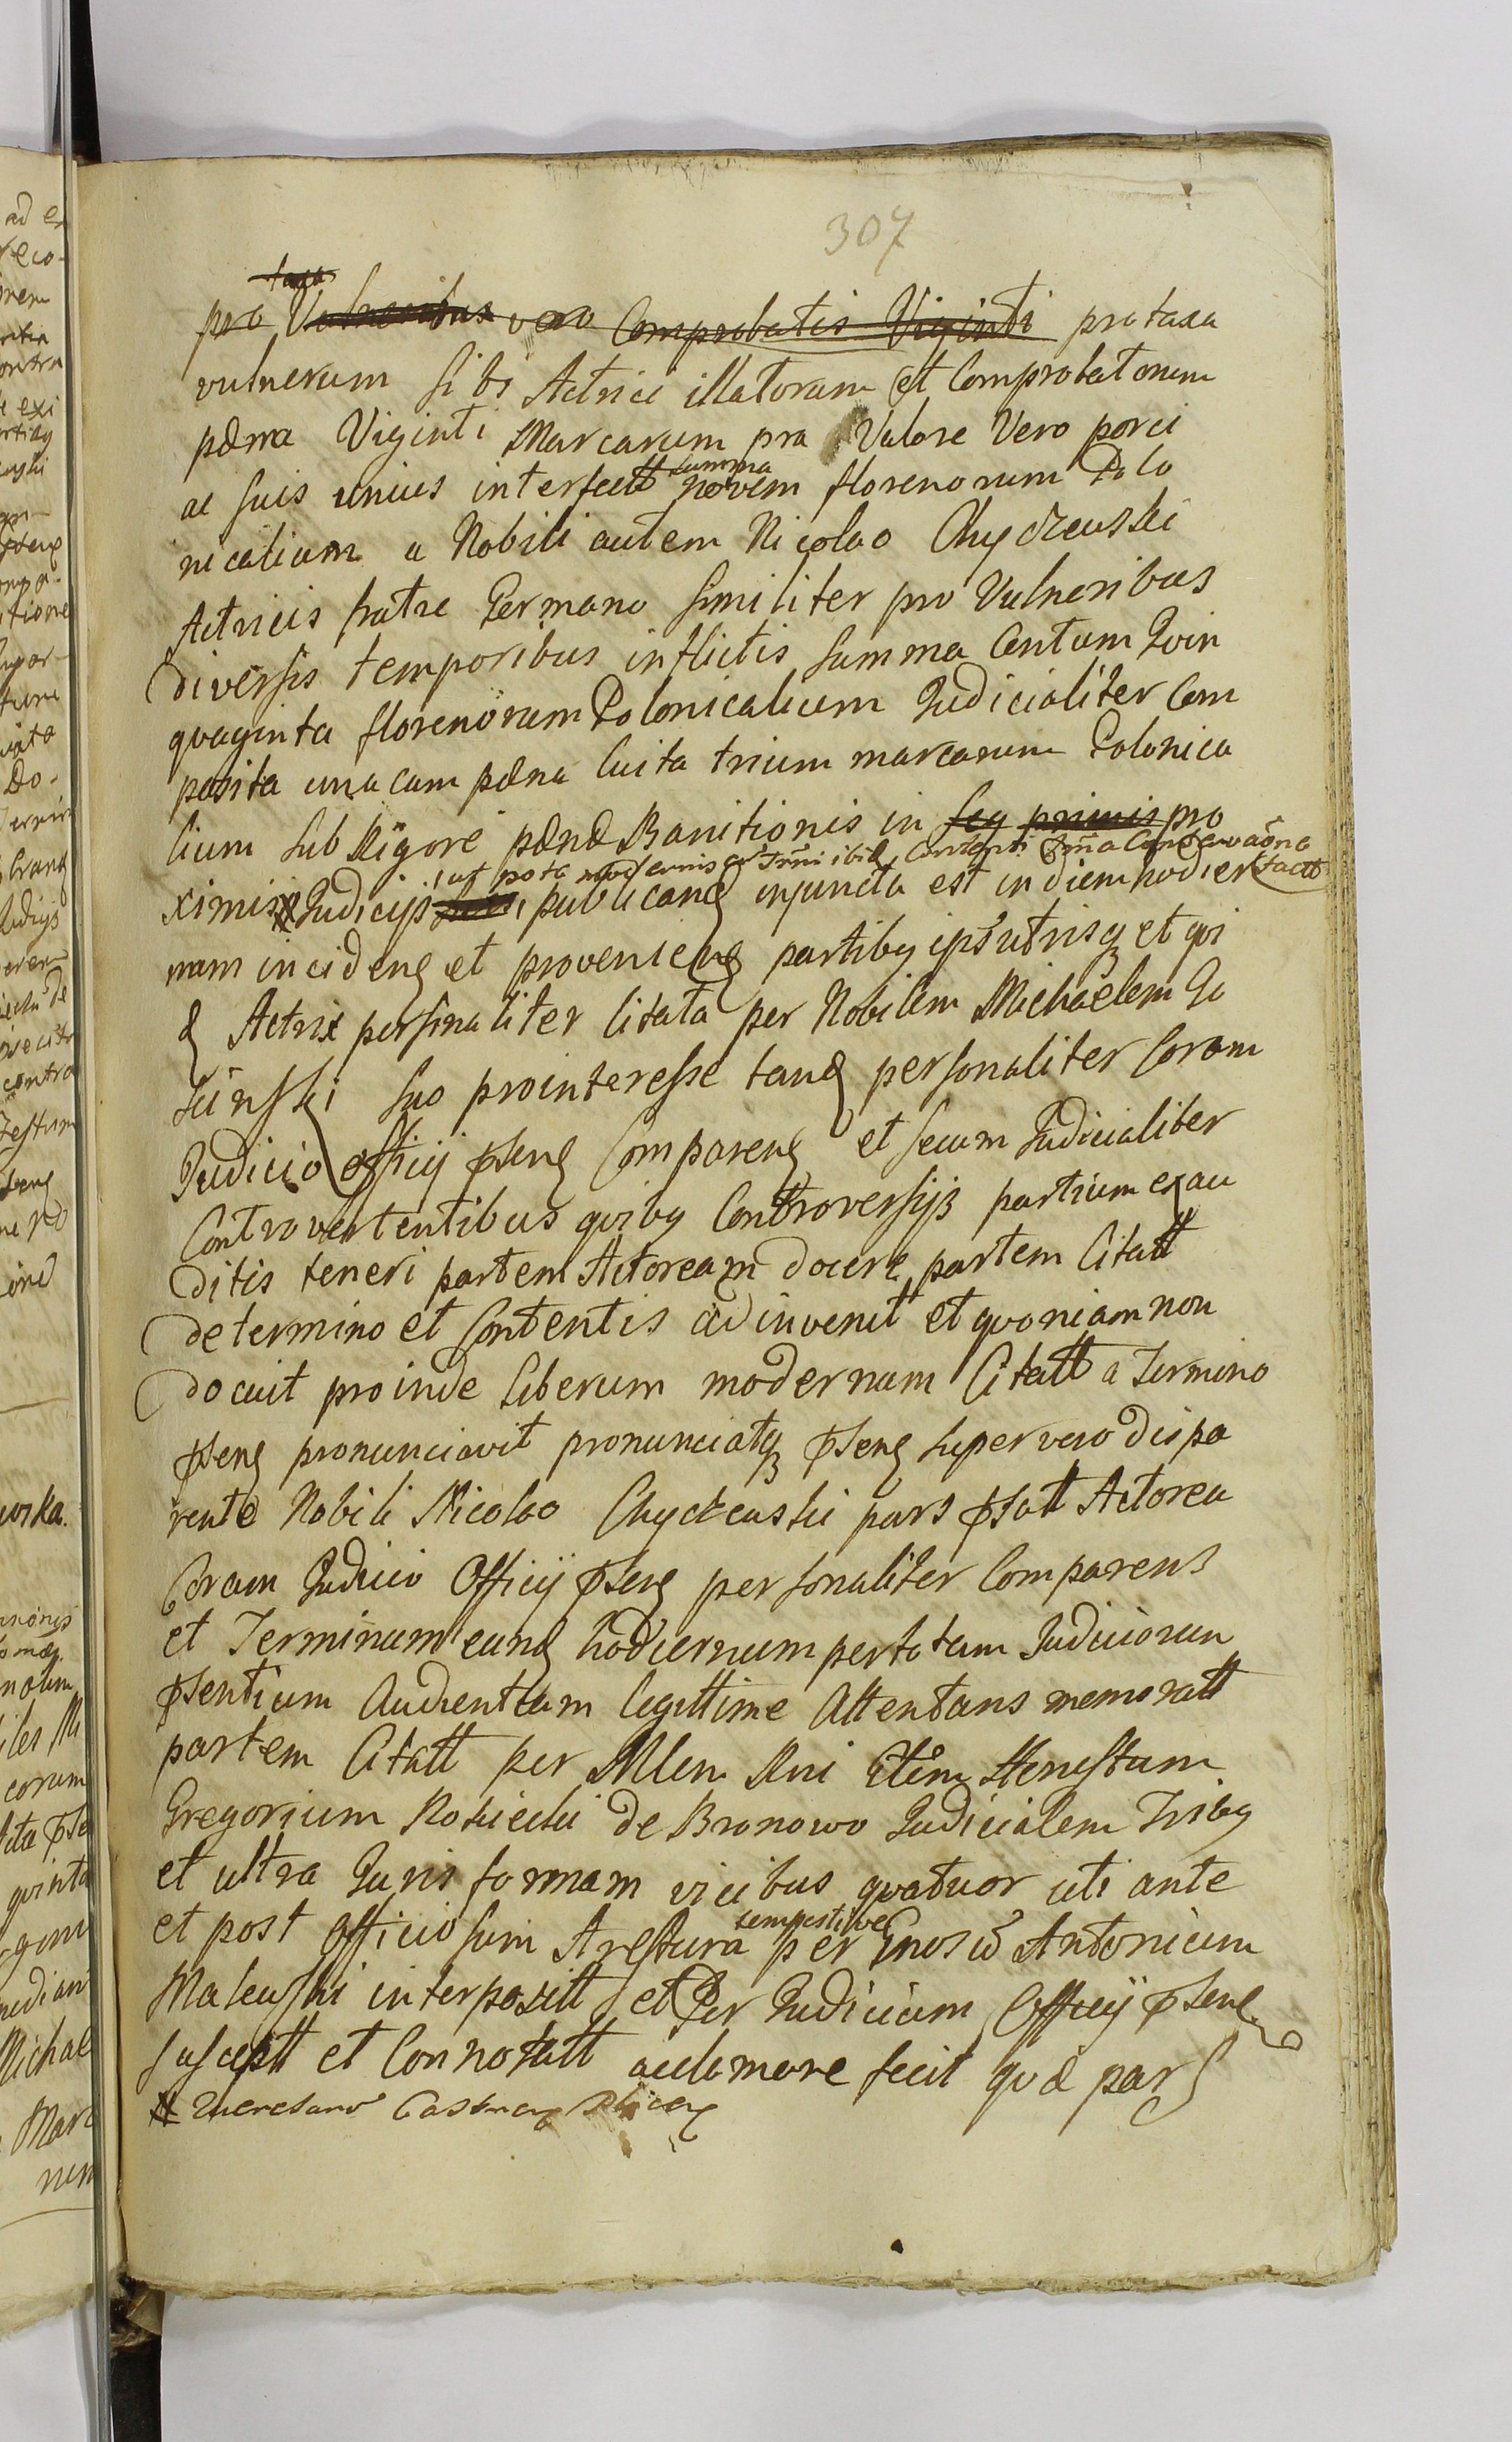 307
pro Vulneribus vero Comprobatis Viginti pro taxa
vulnerum sibi Actrici illatorum et Comprobatorum
pæna Viginti Marcarum pro Valore Vero porci
ac suis unius interfectt summa novem florenorum Polo
nicalium a Nobili autem Nicolao Chydzewski
Actricis fratre Germano similiter pro Vulneribus
diversis temporibus inflictis summa Centum Quin
quaginta florenorum Polonicalium Judicialiter Com
posita una cum pæna luita trium marcarum Polonica
lium sub Rigore pænæ Banitionis in seq primis pro
ut pote modernis ibid
ximis # Judicijs publicand injuncta est in diem hodier
nam inciden et provenien partibq ips utrisq et qui
d Actrix personaliter Citata per Nobilem Michaelem
suo prointeresse tanq personaliter Coram
Judicio Officij pñsen Comparen et secum Judicialiter
Controvertentibus quibq Controversijs partium exau
ditis teneri partem Actoream docere partem Citatt
de termino et Contentis adinvenit et quoniam non
docuit proinde liberum modernum Citatt a Termino
pñsen pronunciavit pronunciatq pñsen super vero dispa
rente Nobili Nicolao Chydzewski pars pñsatt Actorea
Coram Judicio Officij pñsen personaliter Comparens
et Terminum eund hodiernum per totam Judiciorum
pñsentium Audientiam legittime Attentans memoratt
partem Citatt per Mlem Rni Honestum
Gregorium Kosicki de Bronowo Judicialem Tribq
et ultra Juris formam vicibus quatuor uti ante
et post Officiosum Arestum tempestive per Antonium
Malewski interpositt et Per Judicium Officij pñsen
susceptt et Connotatt acclamare fecit quæ pars
# Castren